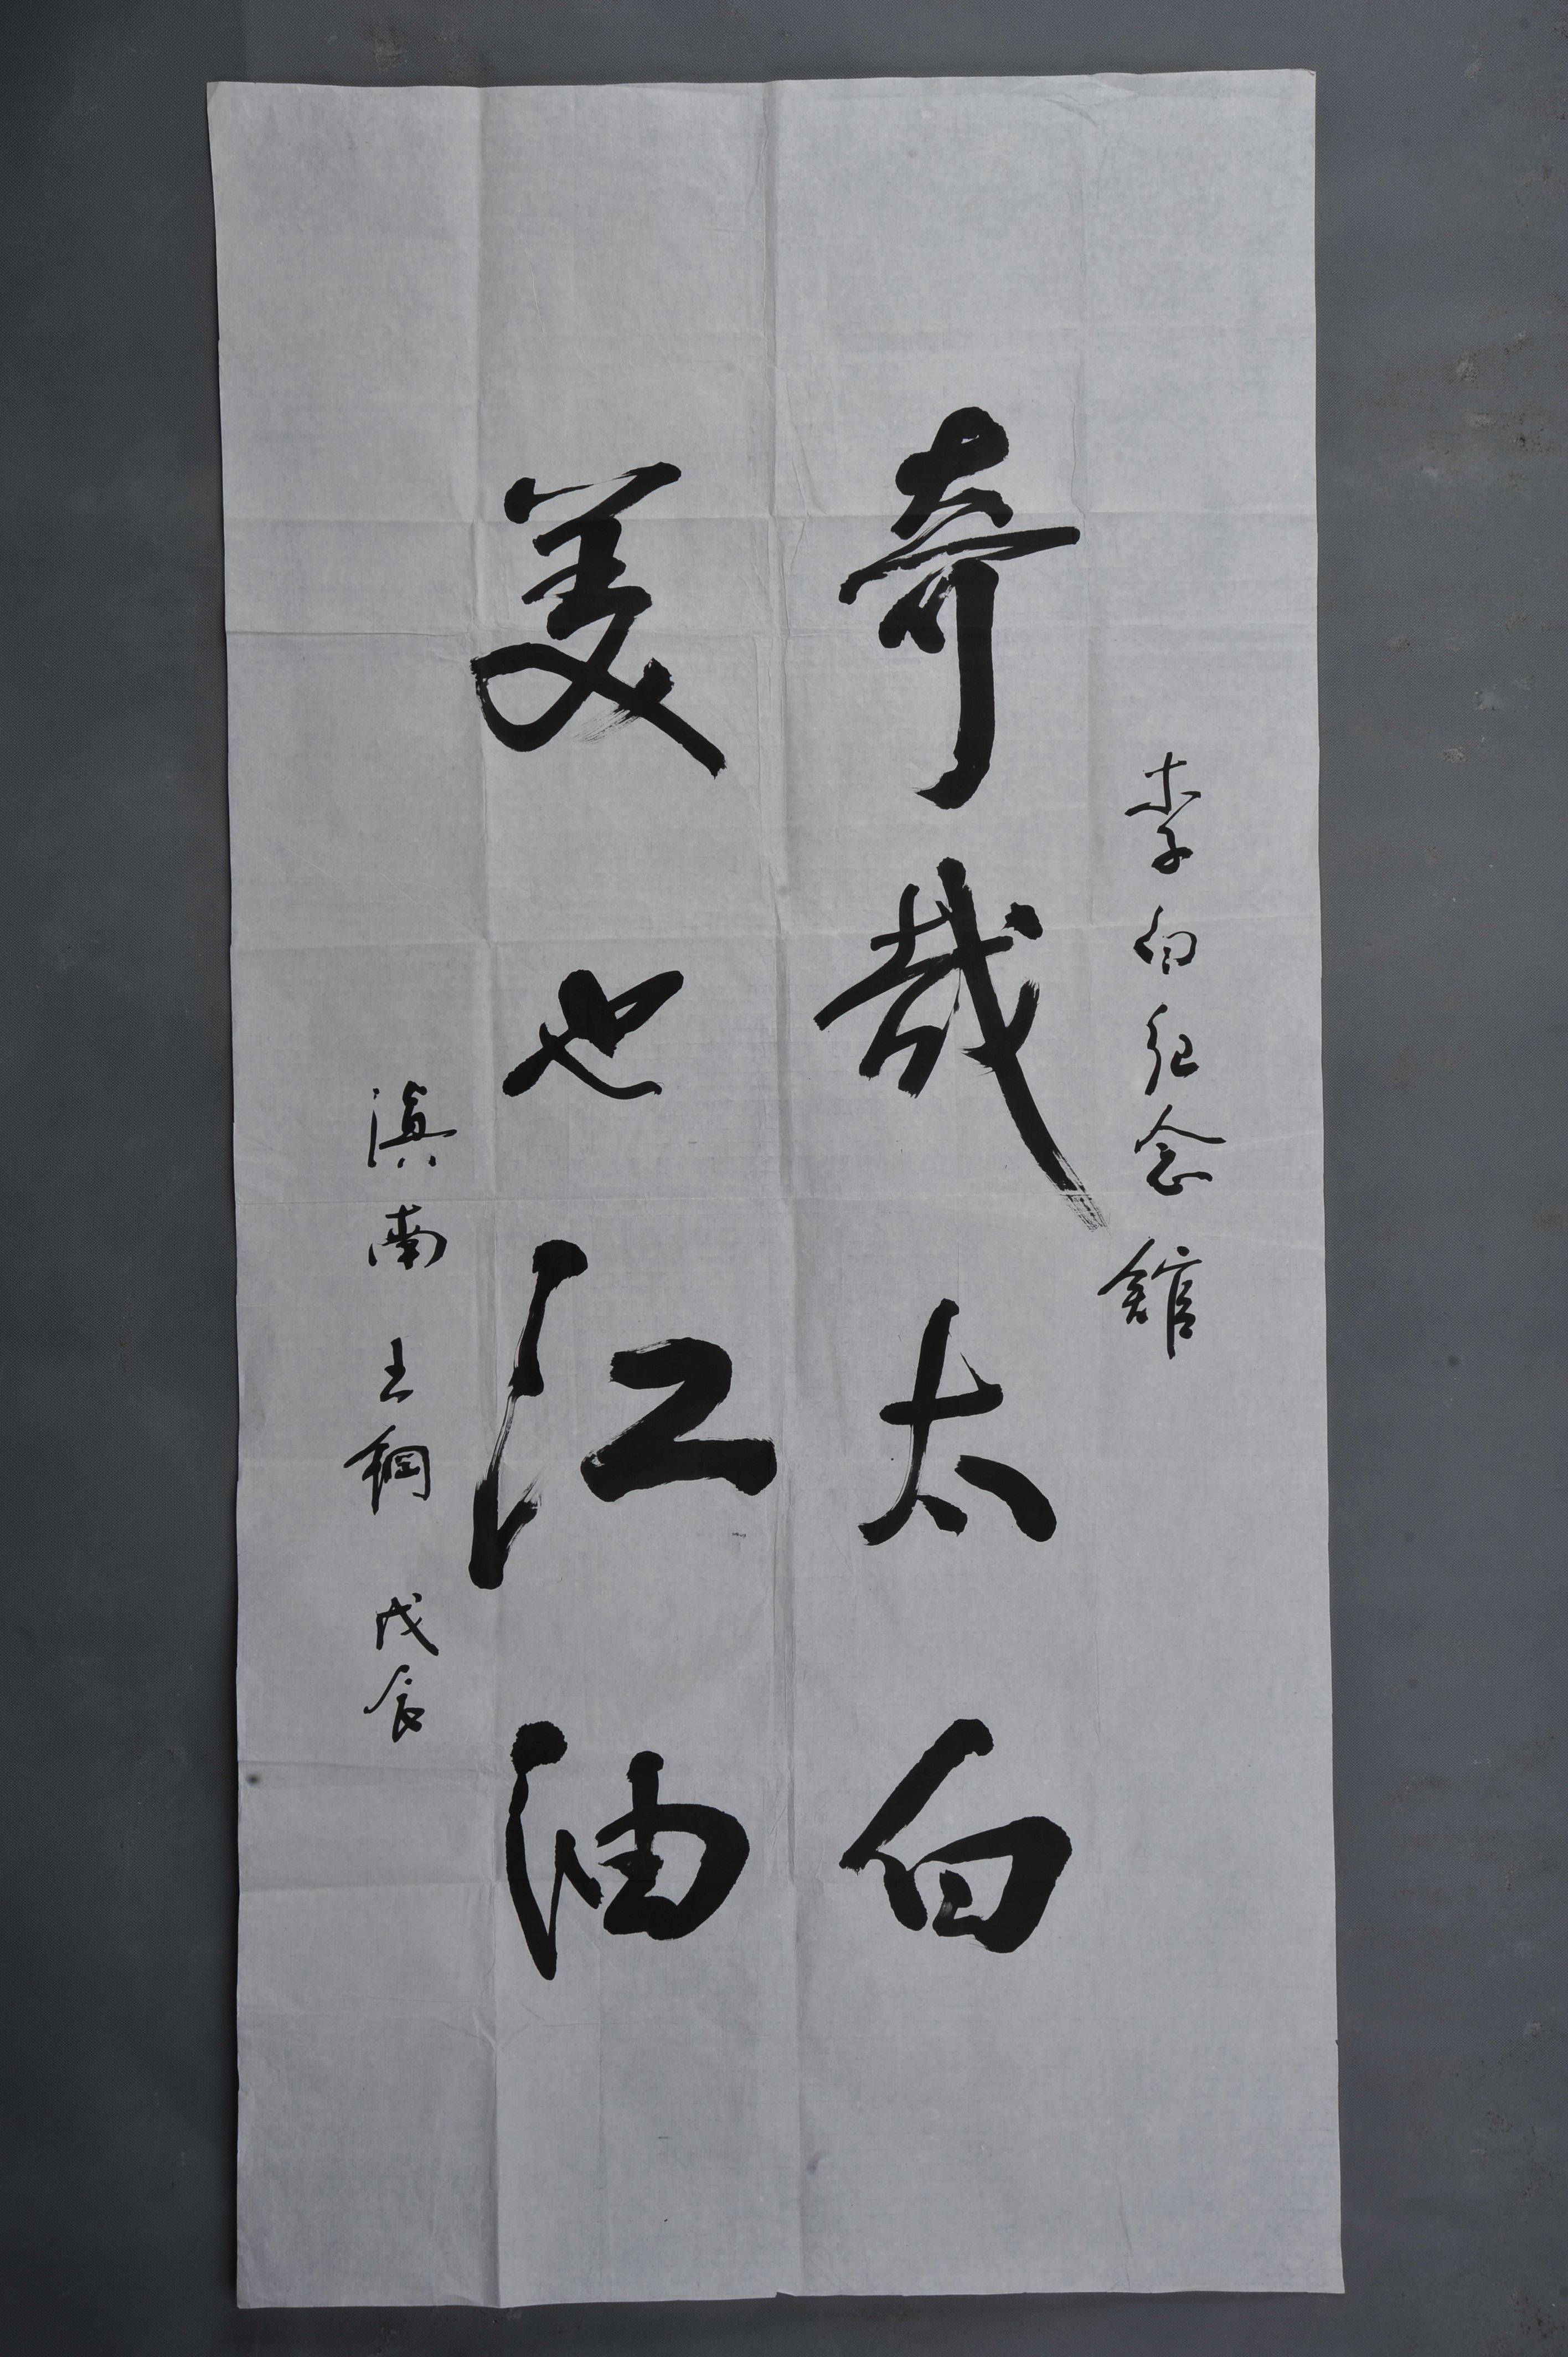 李白纪念馆
奇哉太白
美也江油
滇南 王綱 戊辰